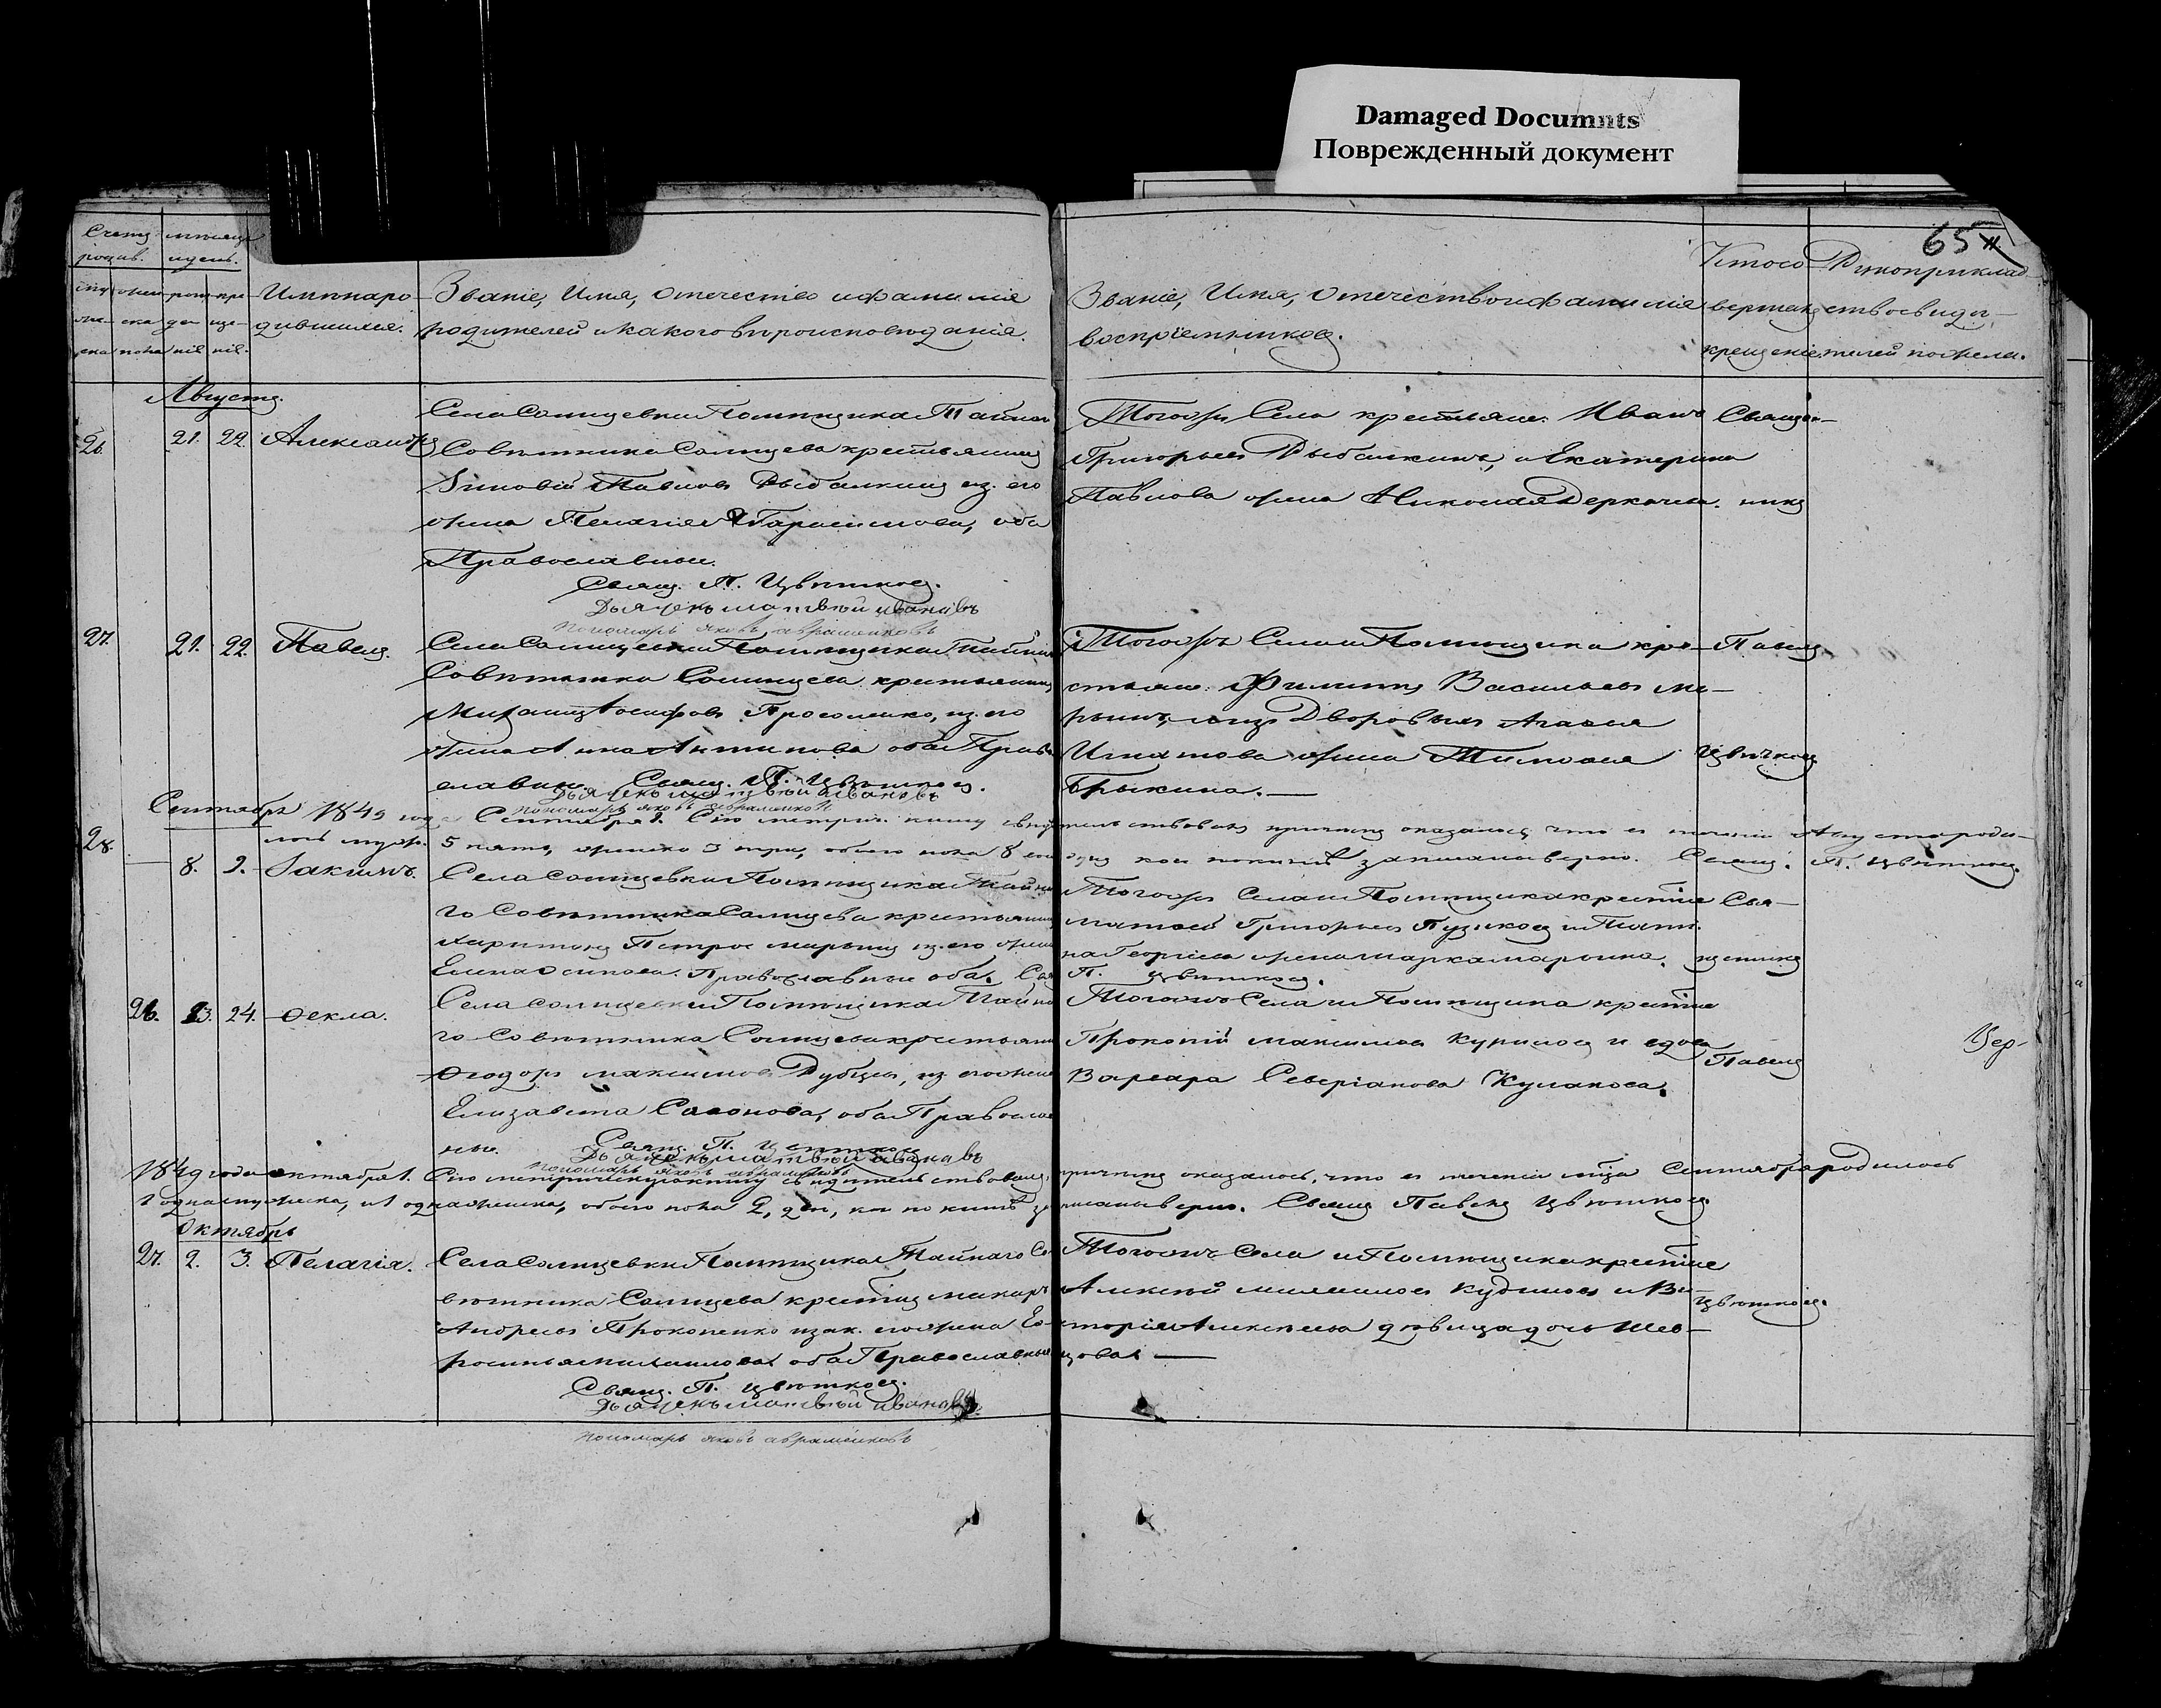 Damaged Documnts
Поврежденный документ
65
Счетъ
родив.
мѣсяцъ
и день.
Имянаро-
дившихся.
Званіе, Имя, Отечество и фамилія
родителей и какого вѣроисповѣданія.
Званіе, Имя, Отечество и фамилія
воспріемниковъ.
Кто со-
вершалъ
крещеніе
Рукоприклад-
ство свидѣ-
телей по жела.
Августъ.
26. 21. 22. Александръ
Села Солнцевки Помѣщика Тайнаго
Совѣтника Солнцева крестьянинъ
Зиновій Павловъ Рыбалкинъ зак. его
жена Пелагія Гарасимова, оба
Православные.
Свящ. П. Цвѣтковъ.
Дьячекъ матвѣй ивановъ
Пономарь яковъ авраменковъ
Тогожъ Села крестьяне. Иванъ
Григорьевъ Рыбалкинъ, и Екатерина
Павлова жена Николая Деркачева.
Священ-
никъ
27. 21. 22. Павелъ.
Села Солнцевки Помѣщика Тайнаго
Совѣтника Солнцева крестьянинъ
Михаилъ Іосифовъ Просоленко, зак. его
жена Анна Антипова оба Право
славные. Свящ. П. Цвѣтковъ.
Дьячекъ матвѣй ивановъ
Пономарь яковъ авраменковъ
Тогожъ Села и Помѣщика кре-
стьяне. Филиппъ Васильевъ Ма-
рынъ, и изъ Дворовыхъ Агафія
Игнатова жена Тимофея
Брыкина.
Павелъ
Цвѣтковъ
Сентябрь 1849 года Сентября 1. Сію метрич. книгу свидѣтельствовалъ причтъ оказалось, что въ теченіи Августа роди-
лось муж. 5 пять, женска 3 три, обоего пола 8 кои по книгѣ записаны верно. Свящ. П. Цвѣтковъ.
28. 8. 9. Іакимъ.
Села Солнцевки Помѣщика Тайна
го Совѣтника Солнцева крестьянинъ
Харитонъ Петровъ марынъ зак. его жена
Елена Осипова. Православные оба. Свя
Тогожъ Села и Помѣщика крестьяне
матвей Григорьевъ Пузиковъ и
Георгіева жена марка марына.
П. Цвѣтковъ.
Свя-
щенникъ
26. 23. 24. Ѳекла.
Села Солнцевки Помѣщика Тайна
го Совѣтника Солнцева крестьянинъ
Ѳеодоръ максимовъ Рубцовъ, зак. его жена
Елизавета Сафонова, оба Православ
ные. Свящ. П. Цвѣтковъ
Дьячекъ матвѣй ивановъ
Пономарь яковъ авраменковъ
Тогожъ Села и Помѣщика крестьяне
Прокопій максимовъ Куриловъ и вдова
Варвара Северіанова Кулакова.
Павелъ
1849 года октября 1. Сію метрическую книгу свидѣтельствовалъ причтъ оказалось, что въ теченіи мѣсяца Сентября родилось
1 одна мужеска, и 1 одна женска, обоего пола 2, две, кои по книгѣ записаны верно. Свящ. Павелъ Цвѣтковъ
Октябрь
27. 2. 3. Пелагія.
Села Солнцевки Помѣщика Тайнаго Со
вѣтника Солнцева крестьянинъ макаръ
Андреевъ Прокопенко зак. его жена Ев-
росинья михаилова оба Православные
Свящ. П. Цвѣтковъ.
Дьячекъ матвѣй ивановъ
Пономарь яковъ авраменковъ
Тогожъ Села и Помѣщика крестьяне
Алексѣй михаиловъ Кудиновъ и Ви-
кторія Алексѣева дѣвица дочь Шев-
цова
Цвѣтковъ.